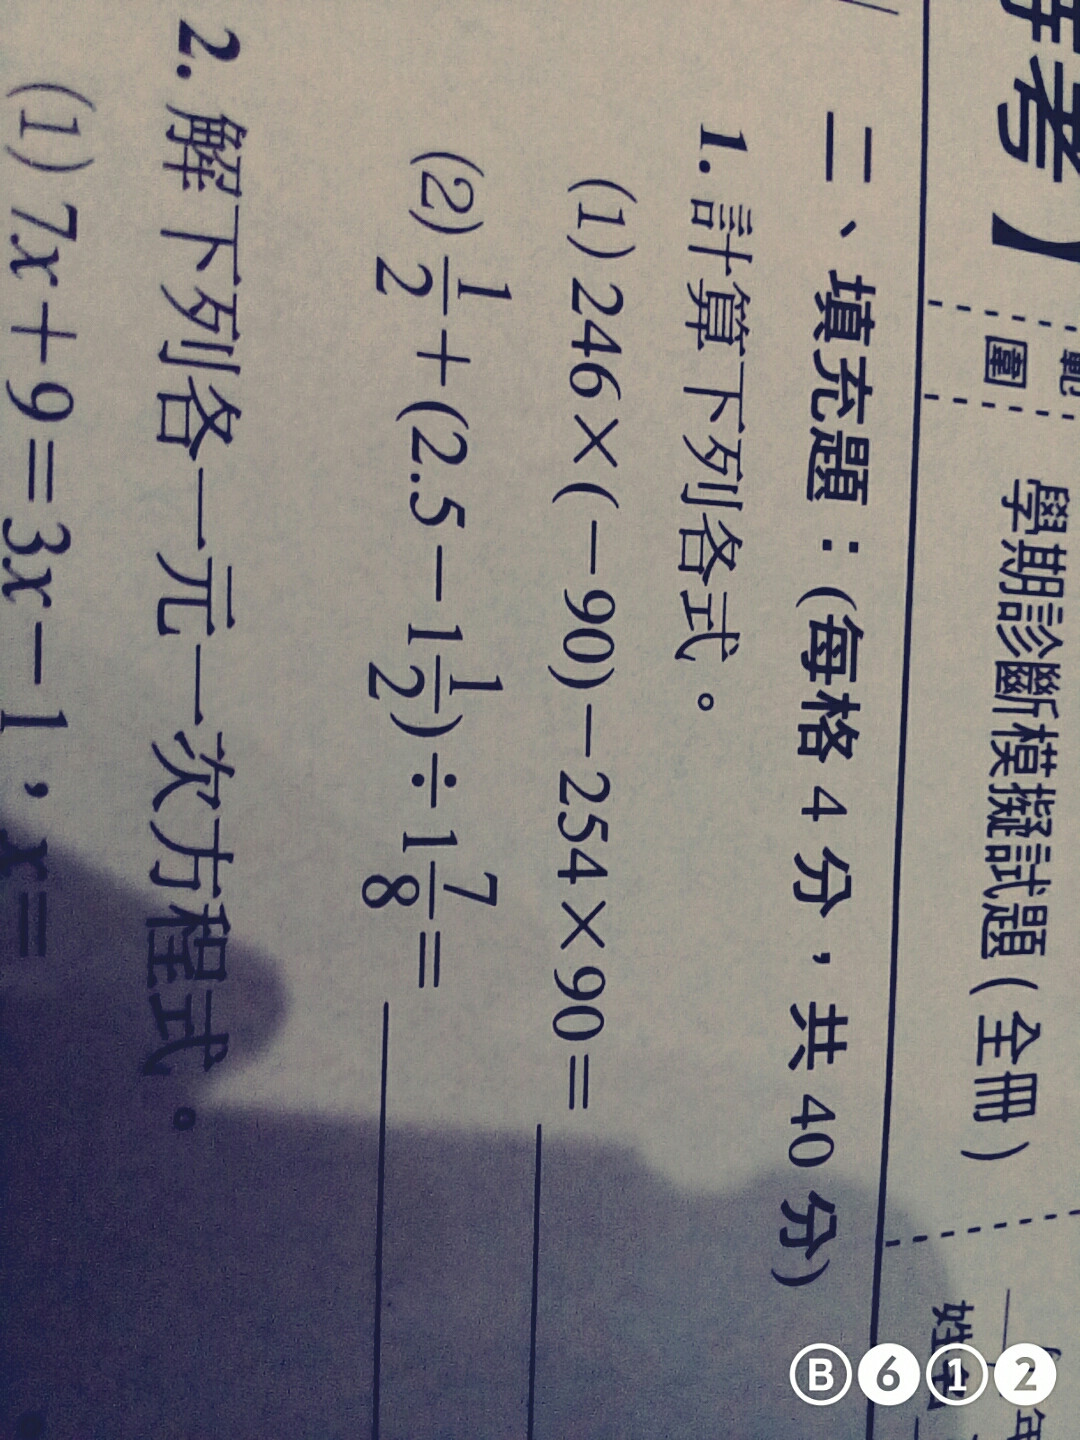 考】
範圍
學期診斷模擬試題(全冊)
年
姓名
二、填充題：(每格 4 分，共 40 分)
1. 計算下列各式。
(1) 246×(−90)−254×90=
(2) 1/2+(2.5−1 1/2)÷1 7/8=
2. 解下列各一元一次方程式。
(1) 7x+9=3x−1，x=
B612